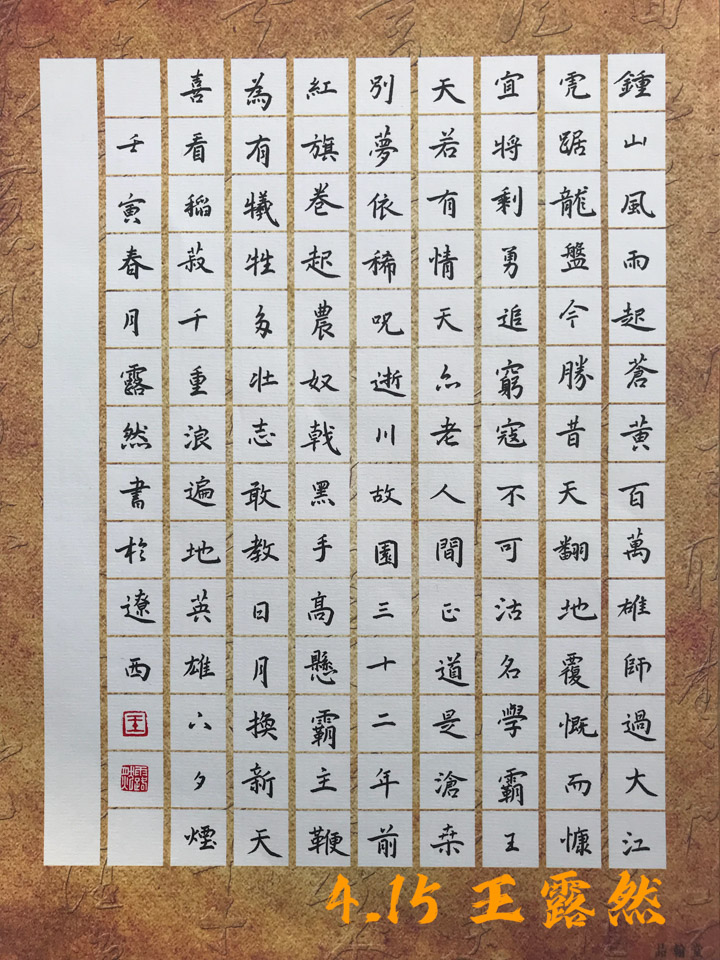 鍾山風雨起蒼黃百萬雄師過大江
虎踞龍盤今勝昔天翻地覆慨而慷
宜將剩勇追窮寇不可沽名學霸王
天若有情天亦老人間正道是滄桑
別夢依稀咒逝川故園三十二年前
紅旗卷起農奴戟黑手高懸霸主鞭
為有犧牲多壯志敢教日月換新天
喜看稻菽千重浪遍地英雄下夕煙
壬寅春月露然書於遼西
王
露然
4.15 王露然